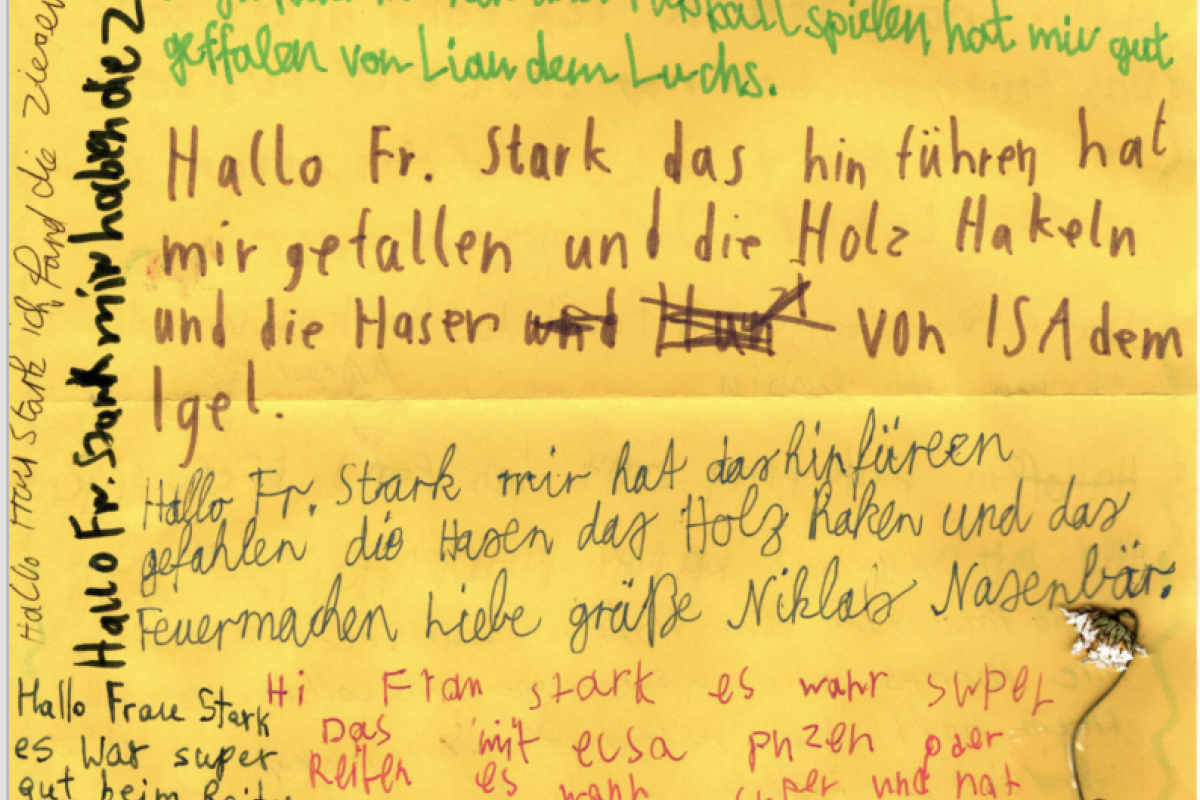 Fußball spielen hat mir gut
geffalen von Lian dem Luchs.
Hallo Fr. Stark das hin führen hat
mir gefallen und die Holz Hakeln
und die Hasen von ISA dem
Igel.
Hallo Fr. Strark mir hat das hinfüreen
gefahlen die Hasen das Holz haken und das
Feuermachen Liebe größe Niklas Nasenbär.
Hallo Frau Stark ich fand die
Hallo Fr. Stark mir haben die
Hallo Frau Stark
es war super
gut beim
Hi Frau stark es wahr super
Das mit
Reiten es und hat